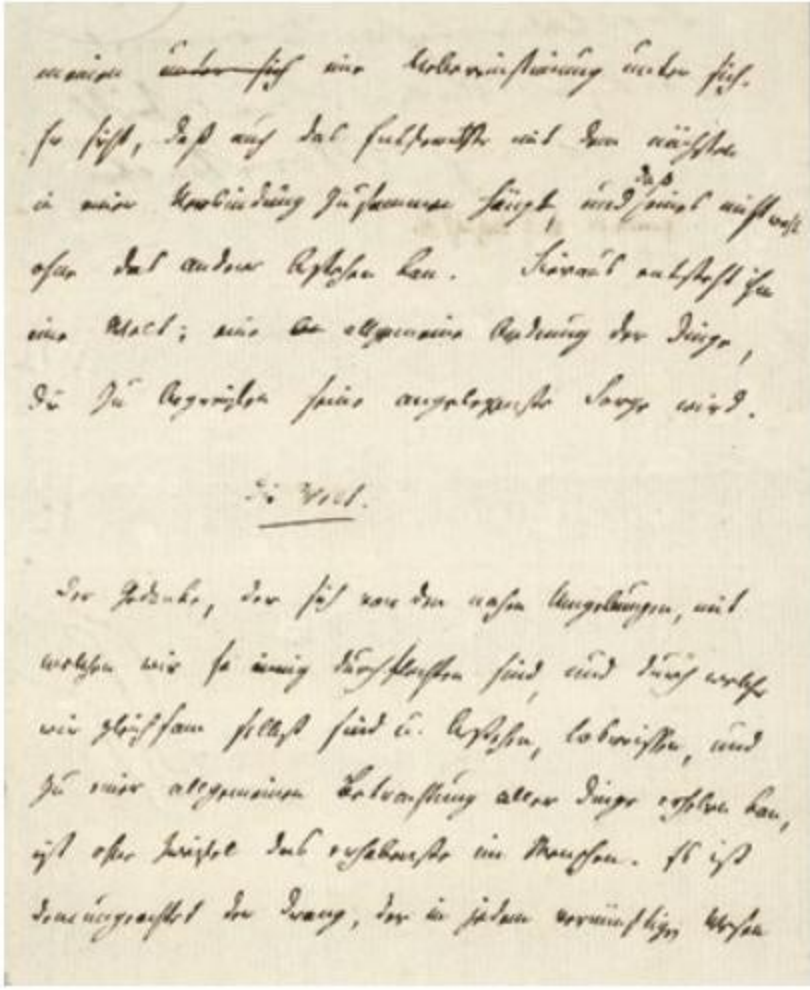 meinen ̶u̶n̶t̶e̶r̶ ̶s̶i̶c̶h̶ eine Uebereinstimung unter sich.
Er sieht, daß auch das Entfernteste mit dem nächsten
in einer Verbindung zusammen hängt, und daß eines nicht wohl
ohne das andere bestehen kan. Hieraus entsteht ihm
eine Welt; eine allgemeine Ordnung der Dinge,
die zu begreifen seine angelegenste Sorge wird.
Die Welt.
Der Gedanke, der sich von den nahen Umgebungen, mit
welchen wir so innig durchflochten sind, und durch welche
wir gleichsam selbst sind u. bestehen, losreissen, und
zu einer allgemeinen Betrachtung aller Dinge erheben kan,
ist ohne Zweifel das erhabenste im Menschen. Es ist
demungeachtet der Drang, der in jedem vernünftigen Wesen